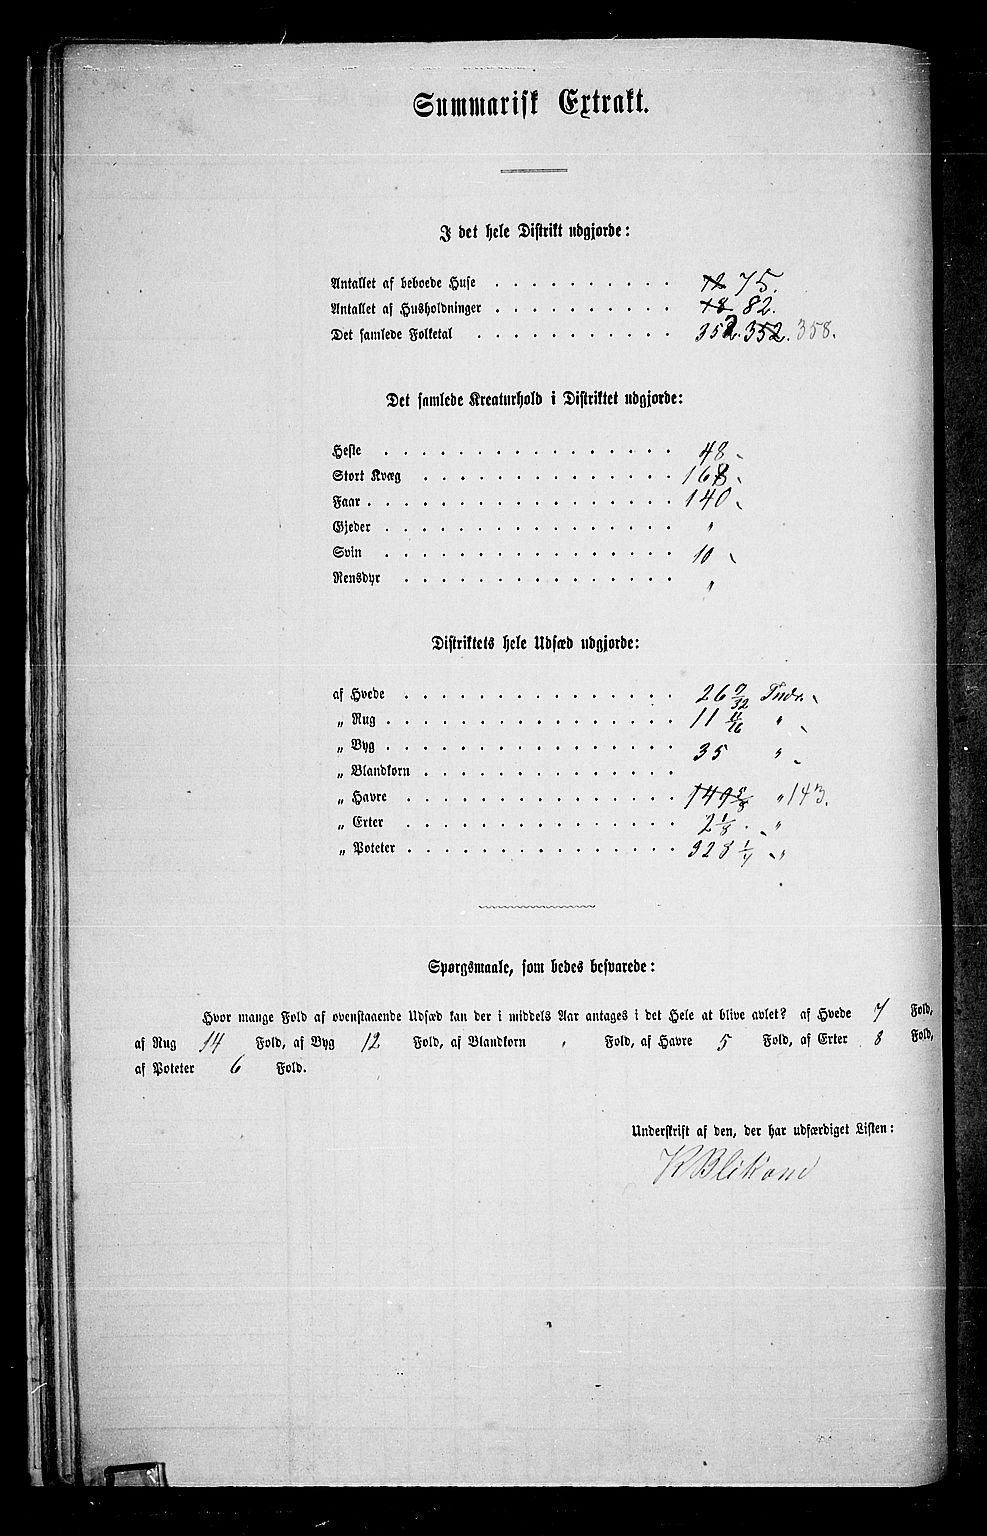 Summarisk Extrakt.
I det hele Distrikt udgjorde:
Antallet af beboede Huse . . . . . . . . . . 12 75.
Antallet af Husholdninger . . . . . . . . . . 18 82.
Det samlede Folketal . . . . . . . . . . . 352. 352. 358.
Det samlede Kreaturhold i Distriktet udgjorde:
Heste . . . . . . . . . . . . . . . . 48
Stort Kvæg . . . . . . . . . . . . . . 168
Faar . . . . . . . . . . . . . . . . . 140
Gjeder . . . . . . . . . . . . . . . . "
Svin . . . . . . . . . . . . . . . . 10
Rensdyr . . . . . . . . . . . . . . . "
Distriktets hele Udsæd udgjorde:
af Hvede . . . . . . . . . . . . . . . 26 9/32 Tndr.
„ Rug . . . . . . . . . . . . . . . . 11 11/16 "
„ Byg . . . . . . . . . . . . . . . . 35 "
„ Blandkorn . . . . . . . . . . . . . .
„ Havre . . . . . . . . . . . . . . . 149 5/8 " 143.
„ Erter . . . . . . . . . . . . . . . 2 1/8 "
„ Poteter . . . . . . . . . . . . . . 328 1/4 "
Spørgsmaale, som bedes besvarede:
Hvor mange Fold af ovenstaaende Udsæd kan der i middels Aar antages i det Hele at blive avlet? af Hvede 7 Fold,
af Rug 14 Fold, af Byg 12 Fold, af Blandkorn " Fold, af Havre 5 Fold, af Erter 8 Fold,
af Poteter 6 Fold.
Underskrift af den, der har udfærdiget Listen:
K Blikom